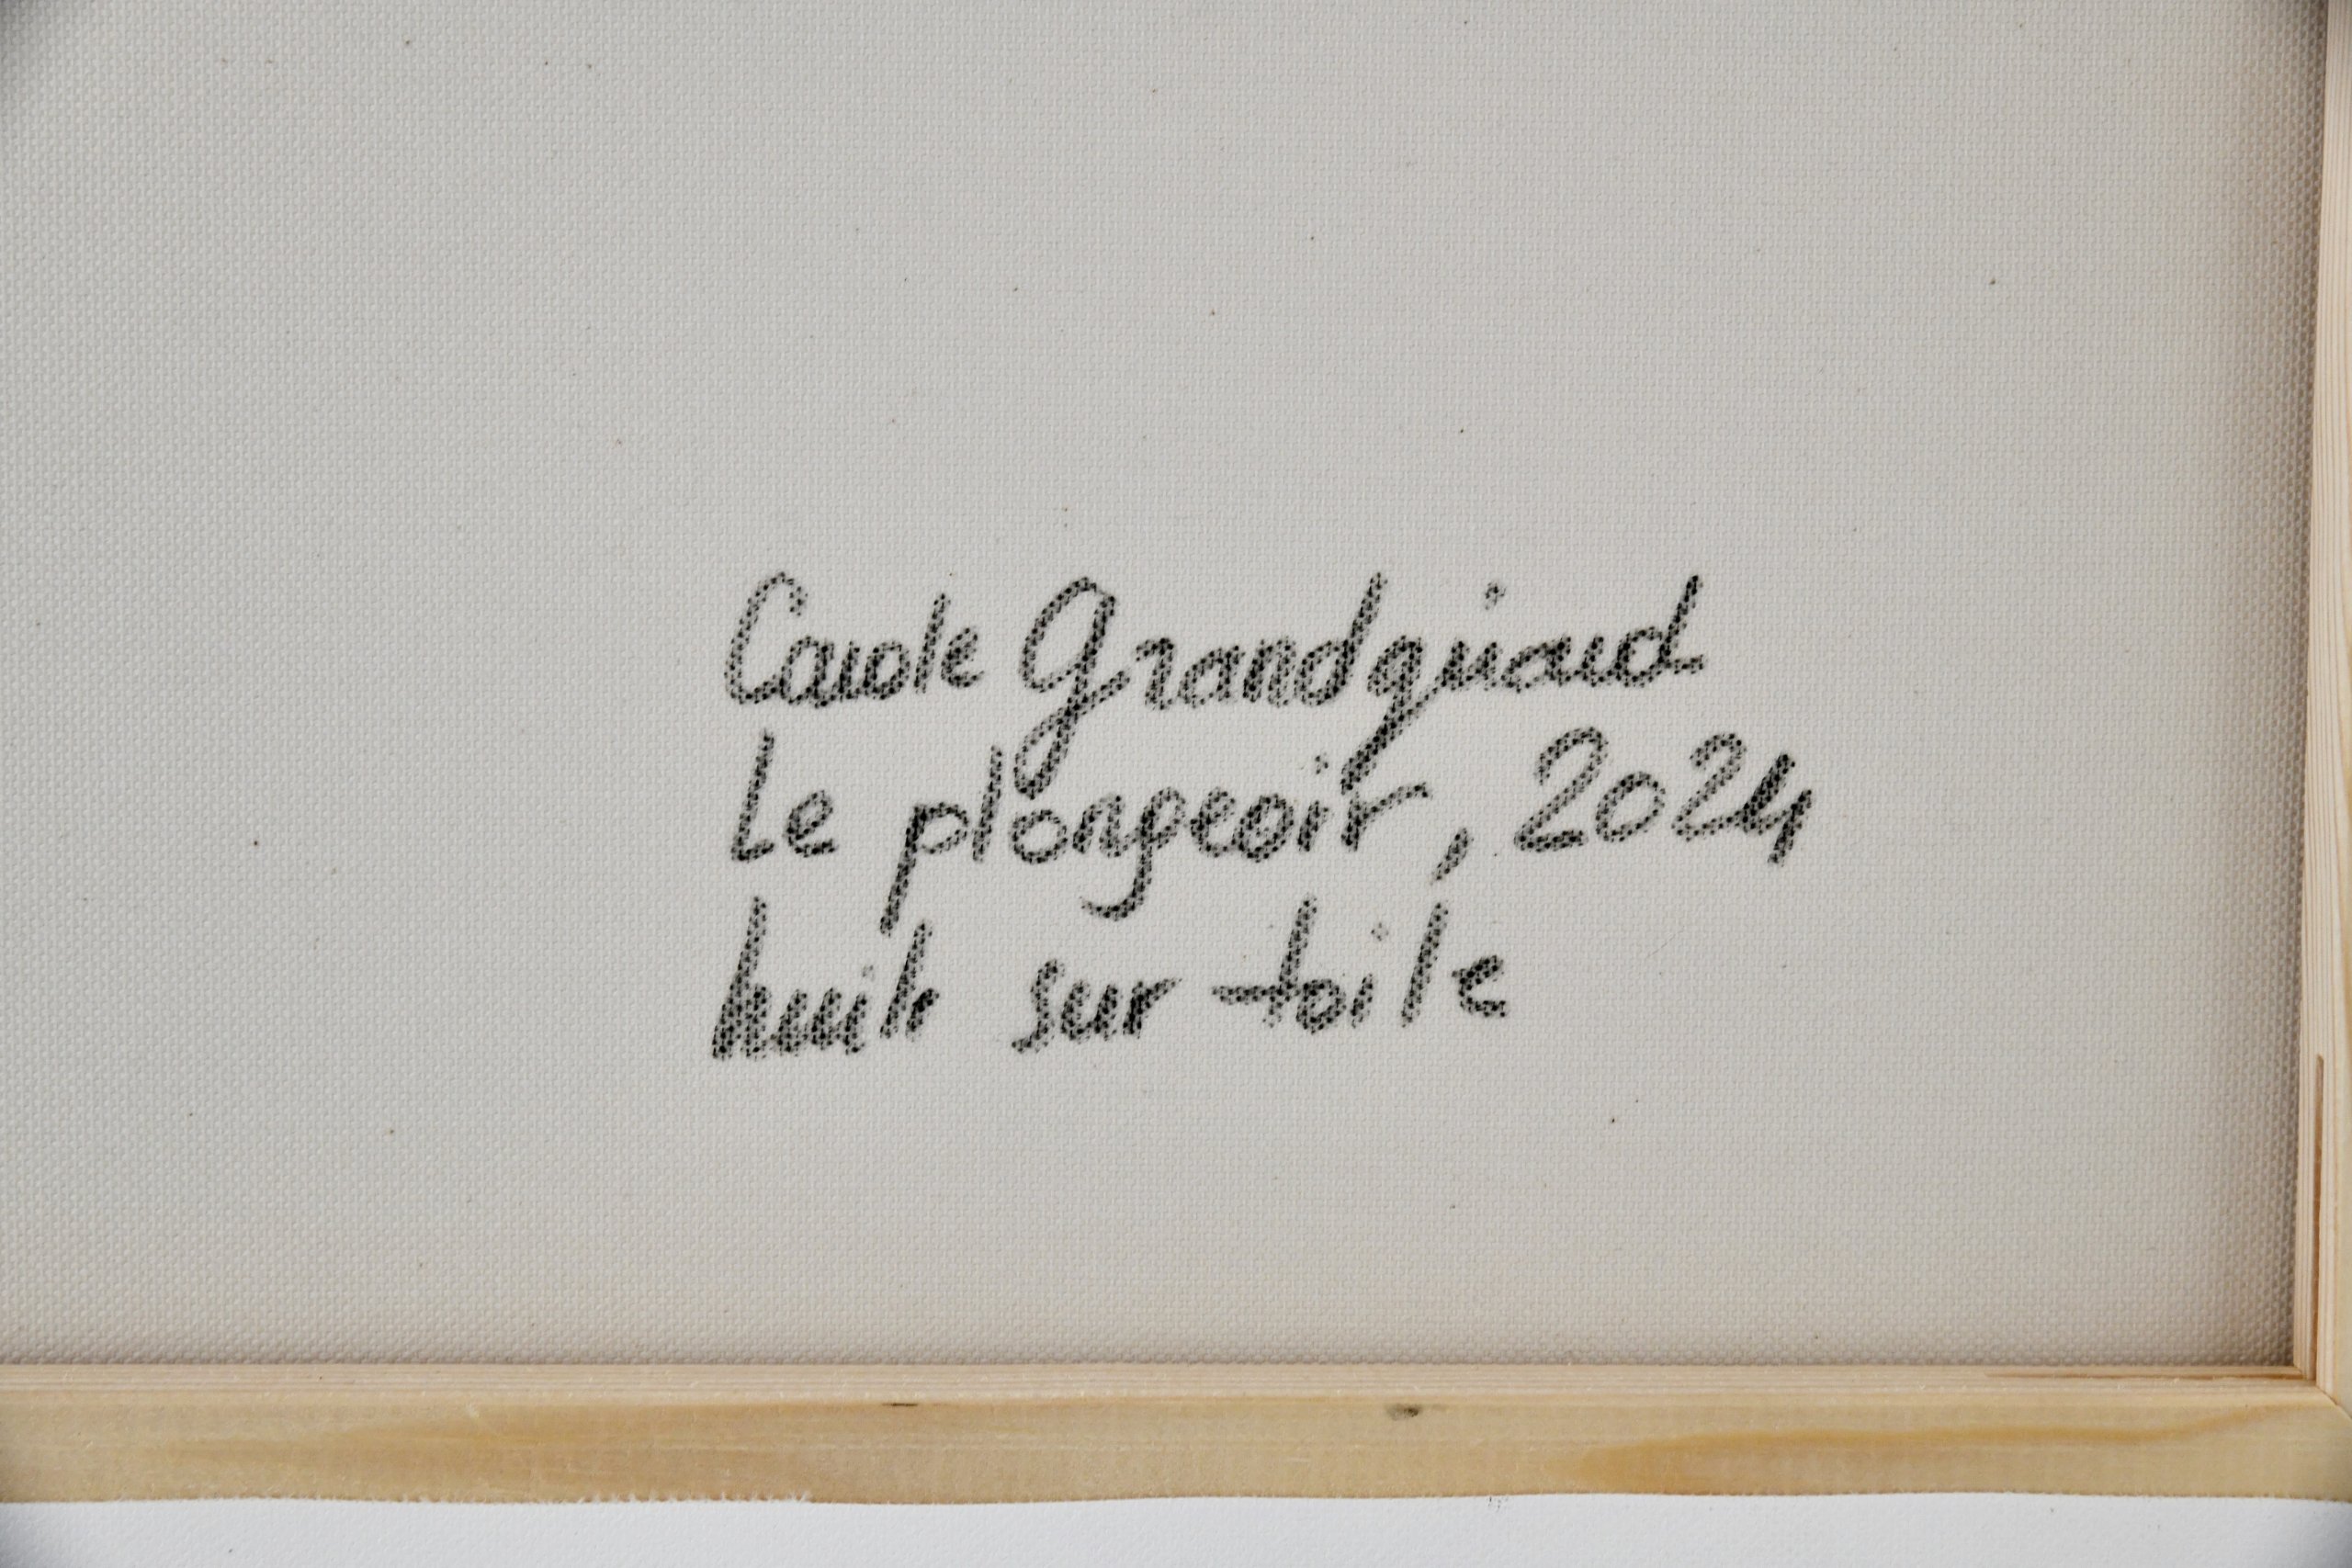 Carole Grandgirard
Le plongeoir, 2024
huile sur toile